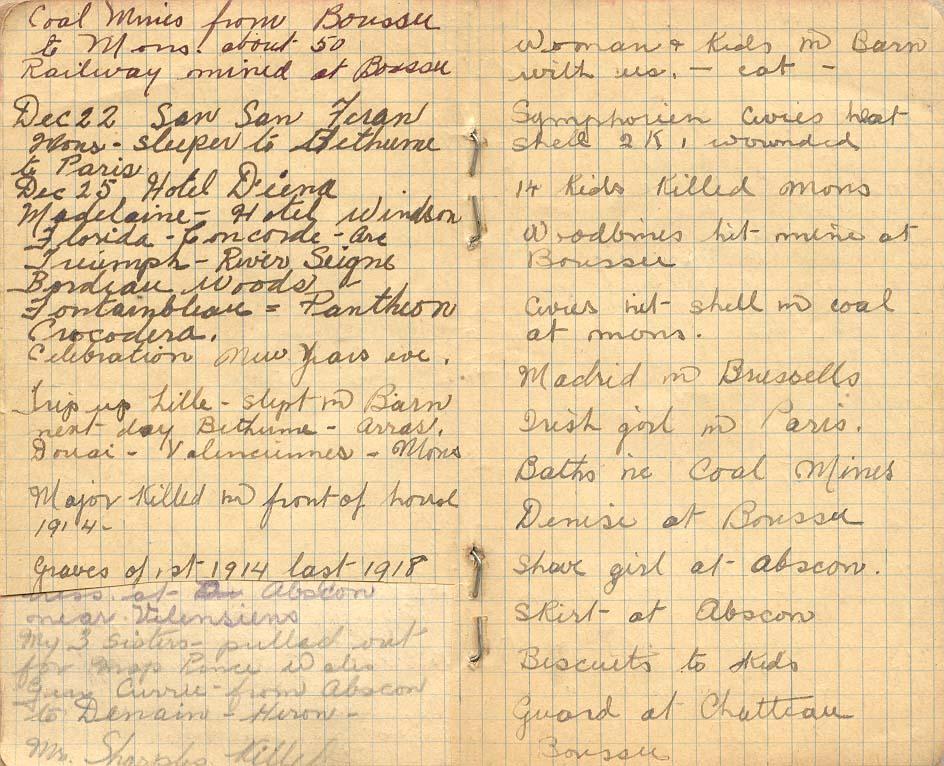 Coal Mines from Boussu
to Mons. about 50
Railway mined at Boussu
Dec 22 San San Feran
Mons - sleeper to Bethume
to Paris
Dec 25 Hotel D'iena
Madelaine - Hotel Windson
Florida - Concorde - Arc
Triumph - River Seigne
Bordeau Woods -
Fontainbleau = Pantheon
Crocodera.
Celebration New Years eve.
Trip up Lille - slept in Barn
next day Bethume - Arras.
Douai - Valenciennes - Mons
Major Killed in front of
1914 -
Graves of 1st 1914 last 1918
at Abscon
near Vilensiens
My 3 sisters - pulled out
for Wales
Currie - from Abscon
to Denain - Heron -
Mr. Killed
Woman & Kids in Barn
with us. - eat -
Symphorien Civies
shell 2 K, 1 wounded
14 Kids Killed Mons
Woodbines hit mine at
Boussu
Civies hit shell in coal
at mons.
Madrid in Brussells
Irish girl in Paris.
Baths in Coal Mines
Denise at Boussu
Shave girl at Abscon.
Skirt at Abscon
Biscuits to Kids
Guard at Chatteau
Boussu